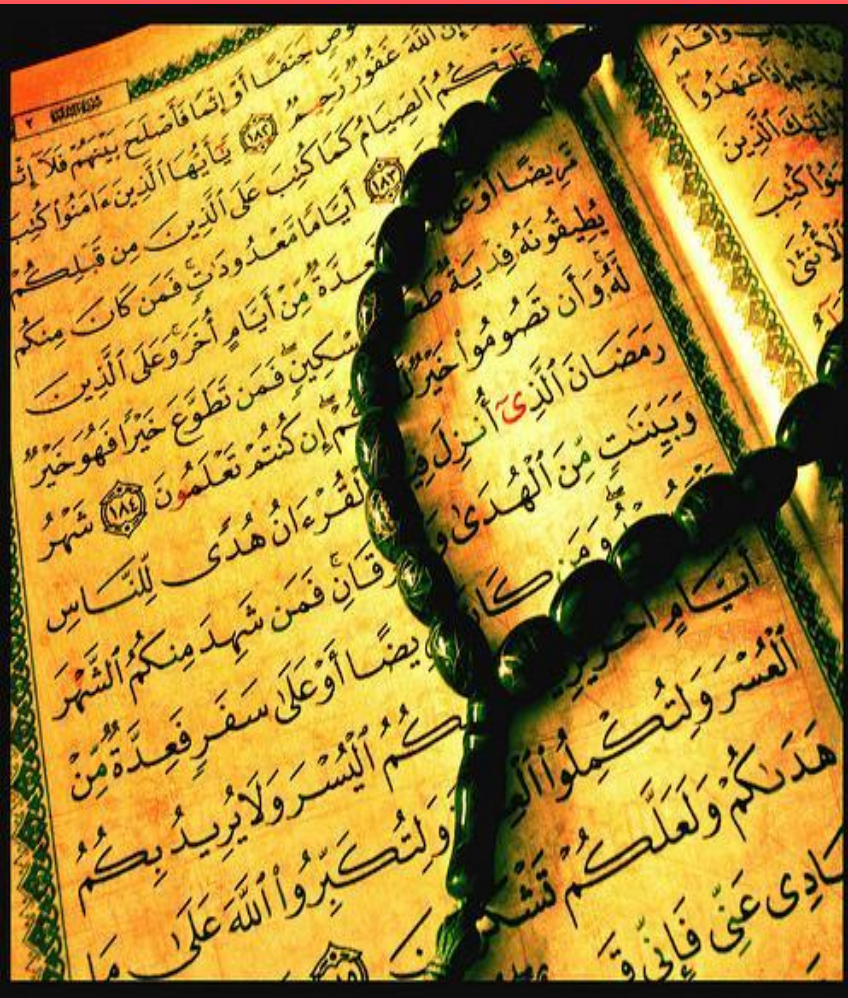 جَنَفًا أَوْ إِثْمًا فَأَصْلَحَ بَيْنَهُمْ فَلَآ إِثْمَ
إِنَّ ٱللَّهَ غَفُورٌ رَّحِيمٌ ١٨٢ يَٰٓأَيُّهَا ٱلَّذِينَ ءَامَنُوا۟ كُتِبَ
عَلَيْكُمُ ٱلصِّيَامُ كَمَا كُتِبَ عَلَى ٱلَّذِينَ مِن قَبْلِكُمْ
١٨٣ أَيَّامًا مَّعْدُودَٰتٍ فَمَن كَانَ مِنكُم
مَّرِيضًا أَوْ مِّنْ أَيَّامٍ أُخَرَ وَعَلَى ٱلَّذِينَ
يُطِيقُونَهُۥ فِدْيَةٌ مِسْكِينٍ فَمَن تَطَوَّعَ خَيْرًا فَهُوَ خَيْرٌ
لَّهُۥ وَأَن تَصُومُوا۟ خَيْرٌ إِن كُنتُمْ تَعْلَمُونَ ١٨٤ شَهْرُ
رَمَضَانَ ٱلَّذِىٓ أُنزِلَ فِيهِ ٱلْقُرْءَانُ هُدًى لِّلنَّاسِ
وَبَيِّنَٰتٍ مِّنَ ٱلْهُدَىٰ فَمَن شَهِدَ مِنكُمُ ٱلشَّهْرَ
وَمَن كَانَ أَوْ عَلَىٰ سَفَرٍ فَعِدَّةٌ مِّنْ
أَيَّامٍ أُخَرَ ٱلْيُسْرَ وَلَا يُرِيدُ بِكُمُ
ٱلْعُسْرَ وَلِتُكْمِلُوا۟ وَلِتُكَبِّرُوا۟ ٱللَّهَ عَلَىٰ مَا
هَدَىٰكُمْ وَلَعَلَّكُمْ
عَنِّى فَإِنِّى
وَأَقَامَ
عَٰهَدُوا۟
ٱلَّذِينَ
كُتِبَ